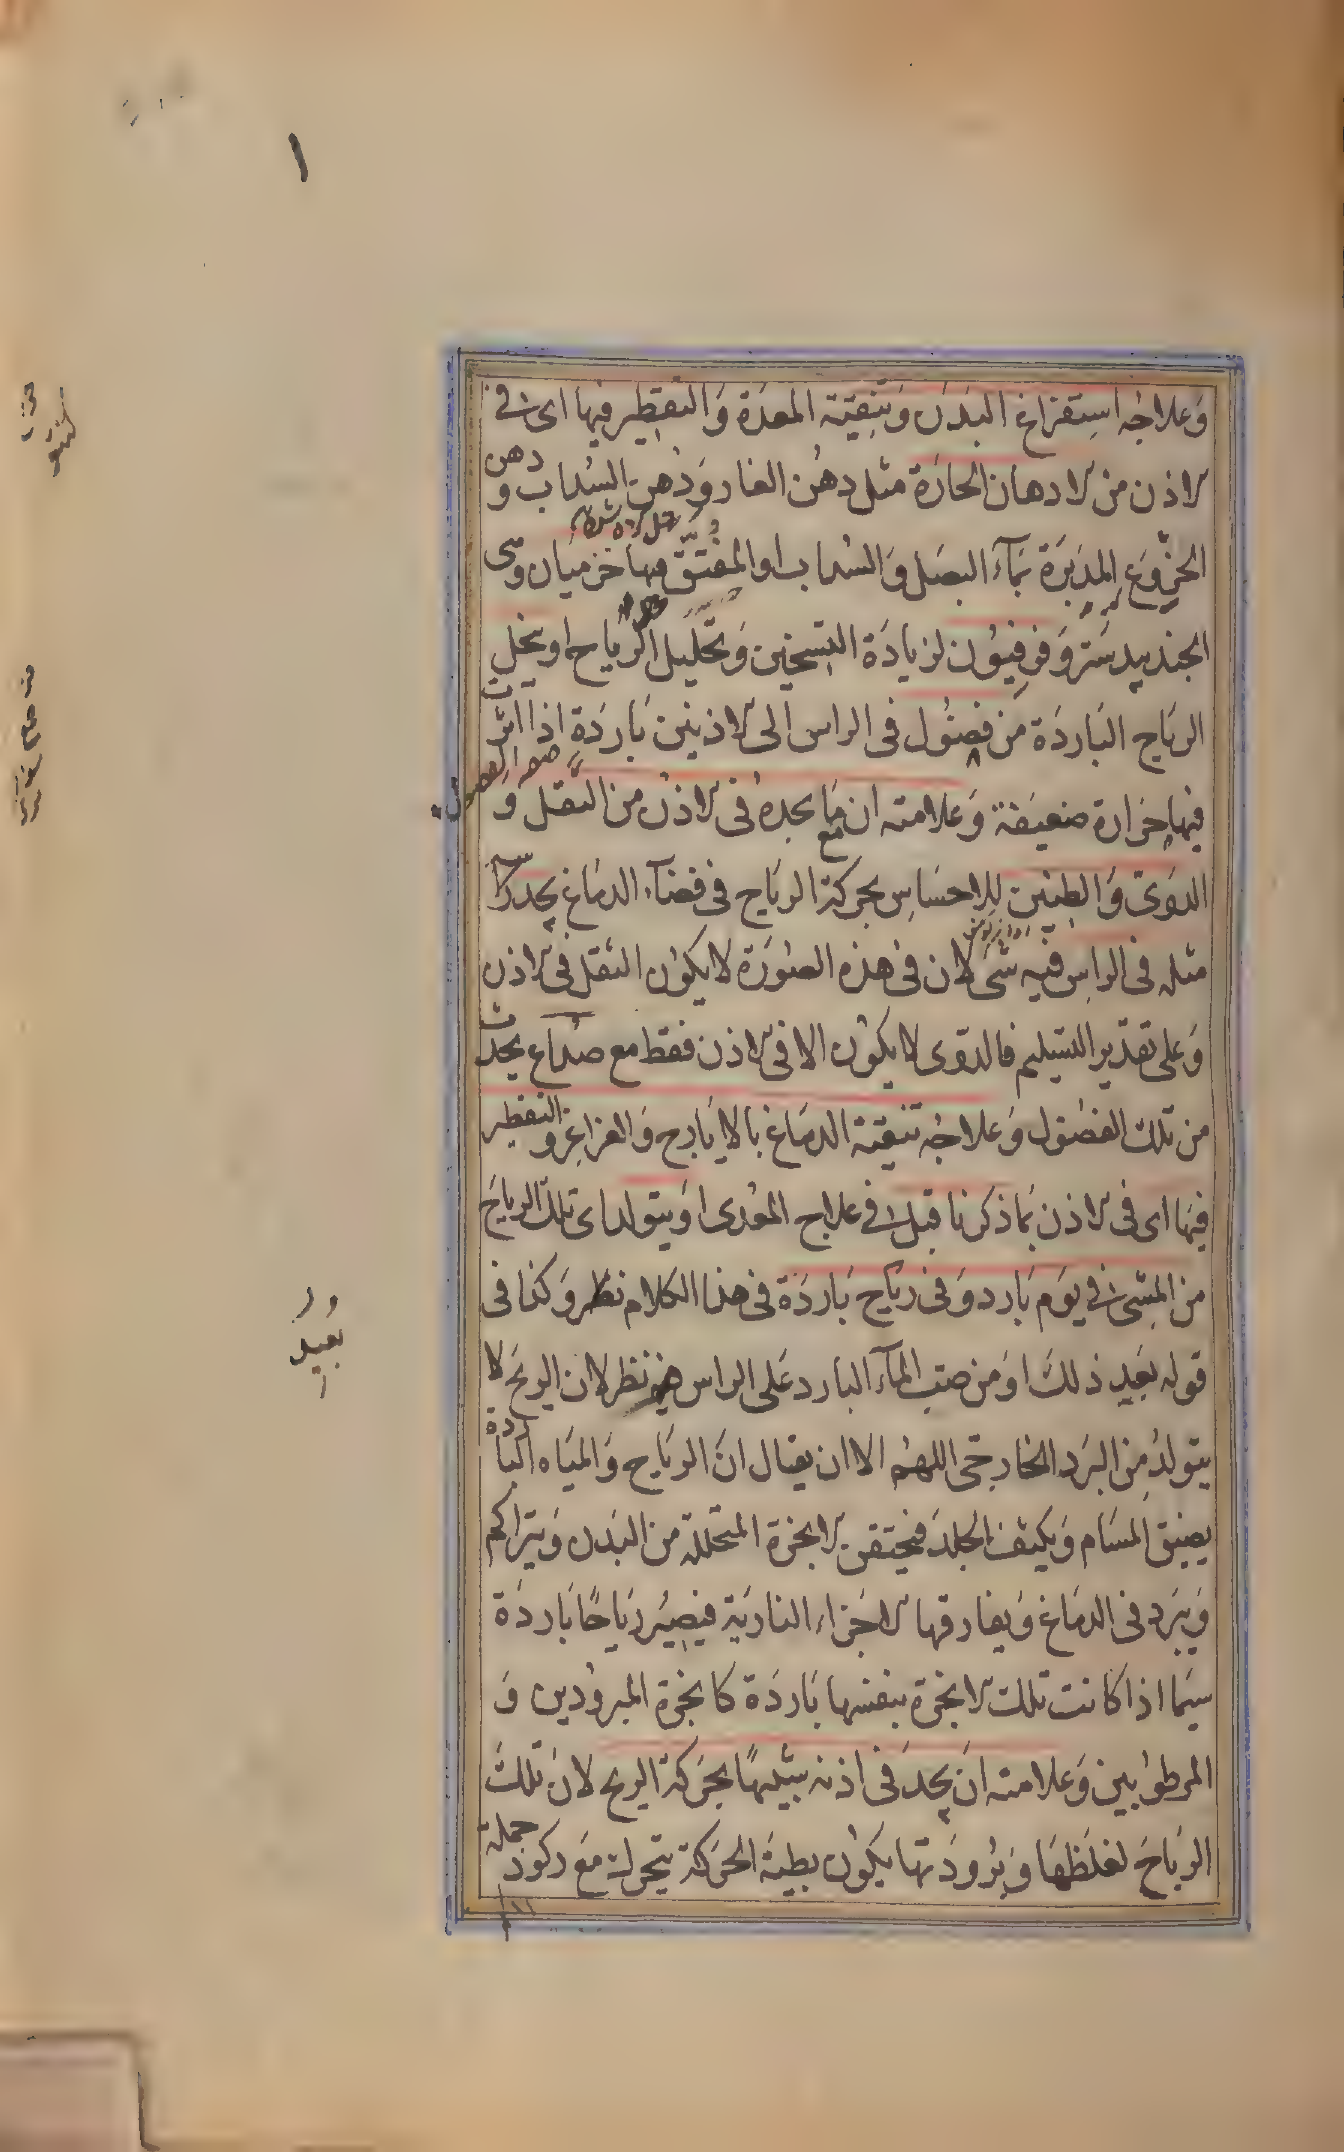 وعلاجه استفراغ البدن وتنقية المعدة والتقطير فيها اى فى
الاذن من الادهان الحارة مثل دهن الغار ودهن السداب ودهن
الخروع المدبرة بماء البصل والسداب او المفتق فيها
الجندبيدستر وفرفيون لزيادة التسخين وتحليل الرياح او ينحل
الرياح الباردة من فضول فى الراس الى الاذنين باردة اذا اثرت
فيها حرارة ضعيفة وعلامته ان مع ما يجده فى الاذن من الثقل و
الدوى والطنين للاحساس بحركة الرياح فى فضاء الدماغ يجد
مثله فى الراس فيه شى لان فى هذه الصورة لا يكون الثقل فى الاذن
وعلى تقدير التسليم فالدوى لا يكون الا فى الاذن فقط مع صداع يحدث
من تلك الفضول وعلاجه تنقية الدماغ بالايارج والغراغر والتقطير
فيها اى فى الاذن بما ذكرنا قبل فى علاج المعدى او يتولد اى تلك الرياح
من المشى فى يوم بارد وفى رياح باردة فى هذا الكلام نظر وكذا فى
قوله بعيد ذلك او من صب الماء البارد على الراس نظر لان الريح لا
يتولد من البرد الخارجى اللهم الا ان يقال ان الرياح والمياه الباردة
يضيق المسام ويكثف الجلد فيحتقن الابخرة المتحللة من البدن ويتراكم
ويبرد فى الدماغ ويفارقها الاجزاء النارية فيصير رياحا باردة
سيما اذا كانت تلك الابخرة بنفسها باردة كابخرة المبرودين و
المرطوبين وعلامته ان يجد فى اذنه شبيها بحركة الريح لان تلك
الرياح لغلظها وبرودتها يكون بطيئة الحركة يتحرك مع ركود
جملة
بعيد